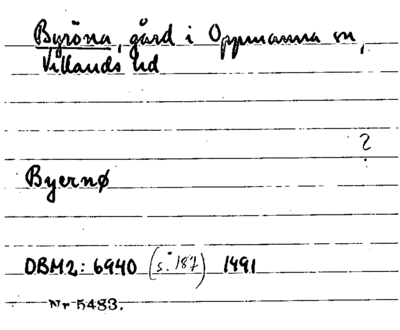 Byröna, gård i Oppmanna sn,
Villands hd
?
Byernø
DBM2: 6940 (s. 187) 1491
Nr 5483.